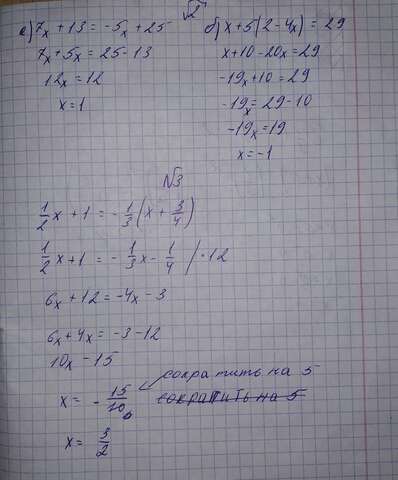 √2
а) 7x + 13 = -5x + 25
7x + 5x = 25 - 13
12x = 12
x = 1
б) x + 5(2 - 4x) = 29
x + 10 - 20x = 29
-19x + 10 = 29
-19x = 29 - 10
-19x = 19
x = -1
√3
1/2 x + 1 = - 1/3 (x + 3/4)
1/2 x + 1 = - 1/3 x - 1/4 / · 12
6x + 12 = -4x - 3
6x + 4x = -3 - 12
10x - 15
сократить на 5
x = - 15/10 сократить на 5
x = 3/2